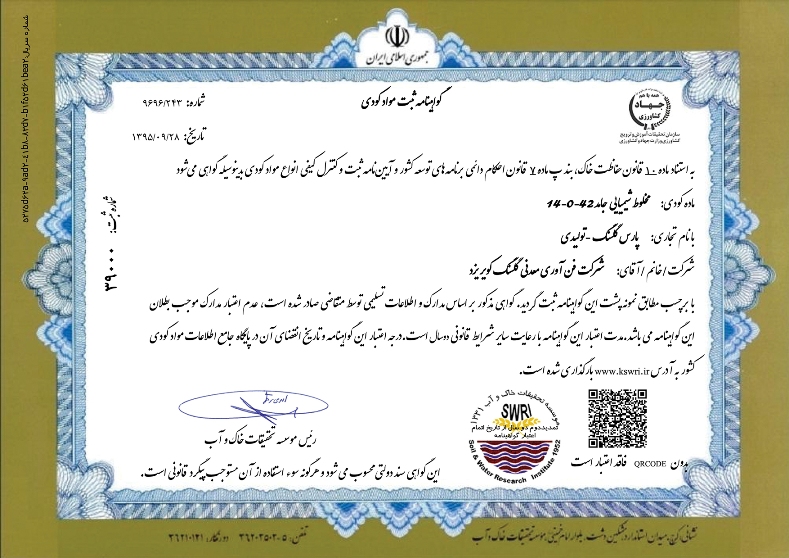 جمهوری اسلامی ایران
گواهینامه ثبت مواد کودی
شماره: ۹۶۹۶/۲۴۳
تاریخ: ۱۳۹۵/۰۹/۲۸
همه با هم
جهاد
کشاورزی
سازمان تحقیقات، آموزش و ترویج
کشاورزی وزارت جهاد کشاورزی
به استناد ماده ۱۰ قانون حفاظت خاک، بند پ ماده ۷ قانون احکام دائمی برنامه های توسعه کشور و آیین نامه ثبت و کنترل کیفی انواع مواد کودی بدینوسیله گواهی می شود
ماده کودی: مخلوط شیمیایی جامد 42-0-14
با نام تجاری: پارس گلسنگ -تولیدی
شرکت/خانم/آقای: شرکت فن آوری معدنی گلسنگ کویر یزد
شماره ثبت: ۳۹۰۰۰
با برچسب مطابق نمونه پشت این گواهینامه ثبت گردید. گواهی مذکور بر اساس مدارک و اطلاعات تسلیمی توسط متقاضی صادر شده است، عدم اعتبار مدارک موجب بطلان
این گواهینامه می باشد.مدت اعتبار این گواهینامه با رعایت سایر شرایط قانونی دوسال است.درجه اعتبار این گواهینامه و تاریخ انقضای آن در پایگاه جامع اطلاعات مواد کودی
کشور به آدرس www.kswri.ir بارگذاری شده است.
رئیس موسسه تحقیقات خاک و آب
موسسه تحقیقات خاک و آب ۱۳۳۱
SWRI
تمدید:دوم دو سال از تاریخ اتمام
اعتبار گواهینامه
Soil & Water Research Institute 1952
بدون QRCODE فاقد اعتبار است
این گواهی سند دولتی محسوب می شود و هرگونه سوء استفاده از آن مستوجب پیگرد قانونی است.
نشانی: کرج، میدان استاندارد، مشکین دشت، بلوار امام خمینی، موسسه تحقیقات خاک و آب
تلفن: ۵-۳۶۲۰۲۵۰۲ دورنگار: ۳۶۲۱۰۱۲۱